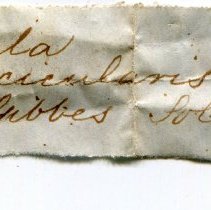 la
cicularis
Gibbes Sol